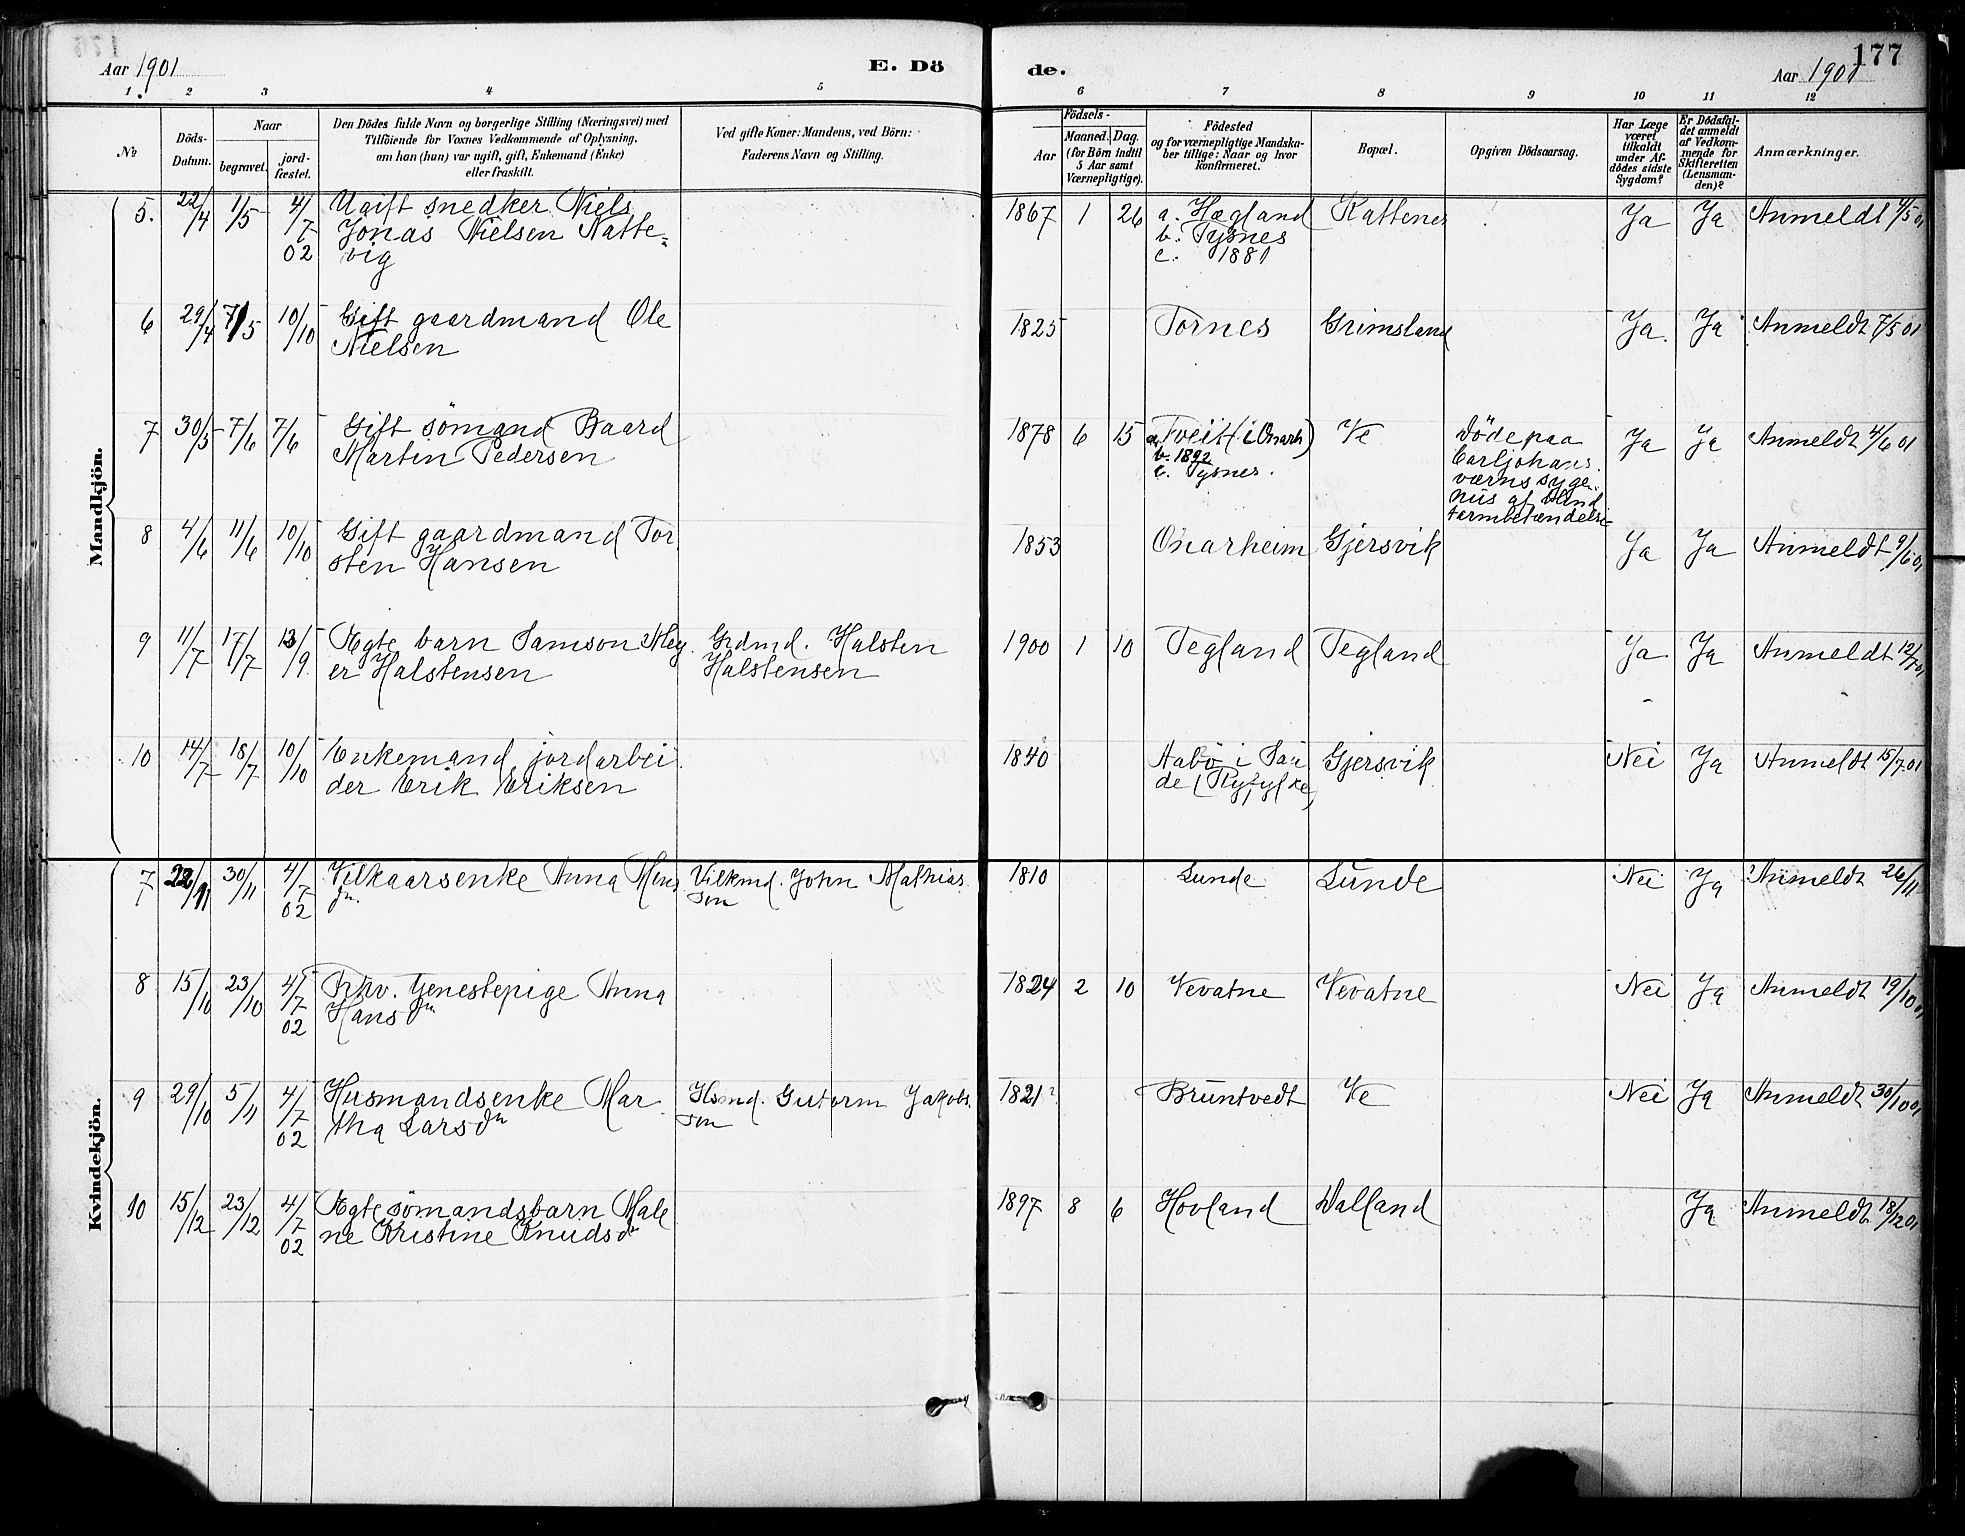 177
Aar 1901
E. Dö
de.
Aar 1901
1. 2 3 4 5 6 7 8 9 10 11 12
№
Döds-
Datum.
Naar
begravet.
jord-
fæstet.
Den Dödes fulde Navn og borgerlige Stilling (Næringsvei) med
Tilföiende for Voxnes Vedkommende af Oplysning,
om han (hun) var ugift, gift, Enkemand (Enke)
eller fraskilt.
Ved gifte Koner: Mandens, ved Börn:
Faderens Navn og Stilling.
Födsels-
Aar
Maaned.
Dag.
(for Börn indtil
5 Aar samt
Værnepligtige).
Födested
og for værnepligtige Mandska-
ber tillige: Naar og hvor
konfirmeret.
Bopæl.
Opgiven Dödsaarsag.
Har Læge
været
tilkaldt
under Af-
dödes sidste
Sygdom?
Er Dödsfal-
det anmeldt
af Vedkom-
mende for
Skifteretten
(Lensman-
den)?
Anmærkninger.
Mandkjön.
5. 22/4 1/5 4/7 02 Ugift snedker Niels
Jonas Nielsen Natte-
vig
1867 1 26 a. Hægland
b. Tysnes
c. 1881
Kattenes Ja Ja Anmeldt 4/5 01
6 29/4 7/5 10/10 Gift gaardmand Ole
Nielsen
1825 Tornes Grimsland Ja. Ja Anmeldt 7/5 01
7 30/5 7/6 7/6 Gift sömand Baard
Martin Pedersen
1878 6 15 a. Tveit (i Onarh)
b. 1892
c. Tysnes.
Ve
Döde paa
Carljohans
værns syge-
hus af blind
tarmbetændelse
Ja Ja Anmeldt 4/6 01
8 4/6 11/6 10/10 Gift gaardmand Tor
sten Hansen
1853 Onarheim Gjersvik Ja Ja Anmeldt 9/6 01
9 11/7 17/7 13/9 Ægte barn Samson Mey
er Halstensen
Grdmd. Halsten
Halstensen
1900 1 10 Tegland Tegland Ja Ja Anmeldt 12/7 01
10 14/7 18/7 10/10 Enkemand, jordarbei
der Erik Eriksen
1840 Aabö i Sau
de (Ryfylke)
Gjersvik Nei Ja Anmeldt 15/7 01
Kvindekjön.
7 22/11 30/11 4/7 02 Vilkaarsenke Anna Mons
dr.
Vilkmd. John Mathias
son
1810 Lunde Lunde Nei Ja Anmeldt 26/11
8 15/10 23/10 4/7 02 Fhv. tjenestepige Anna
Hansdr
1824 2 10 Vevatne Vevatne Nei Ja Anmeldt 19/10 01
9 29/10 5/11 4/7 02 Husmandsenke Mar
tha Larsdr
Hsmd. Gutorm Jakobs
son
1821 Bruntvedt Ve Nei Ja Anmeldt 30/10 01
10 15/12 23/12 4/7 02 Ægte sömandsbarn Male
ne Kristine Knudsdr
1897 8 6 Hovland Dalland Ja Anmeldt 18/12 01